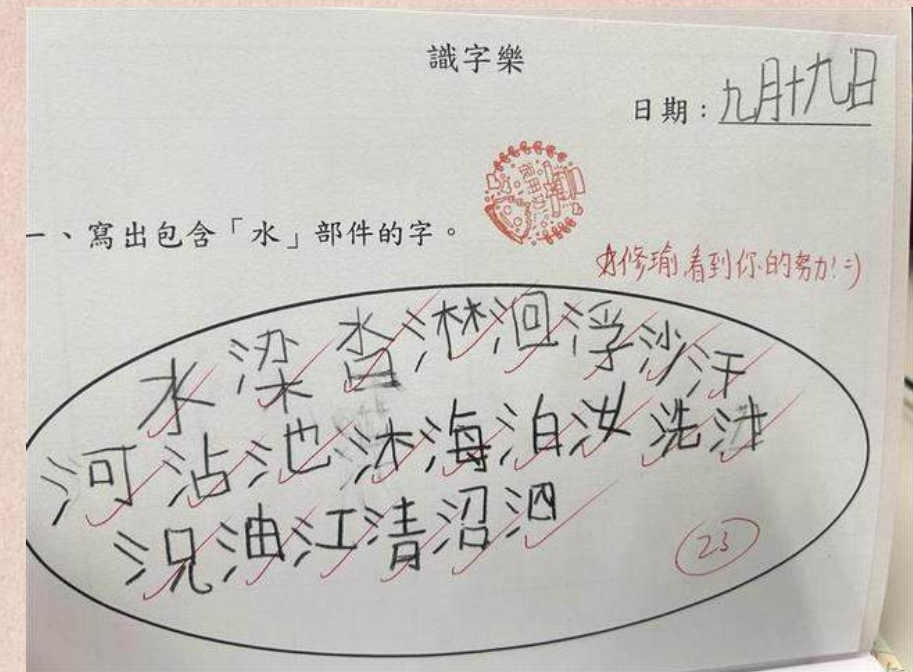 識字樂
日期：九月十九日
一、寫出包含「水」部件的字。
修瑜 看到你的努力!=)
水染沓淋洄浮沙汗
河沾池沐海泊汝洗法
況油江清沼泗
23